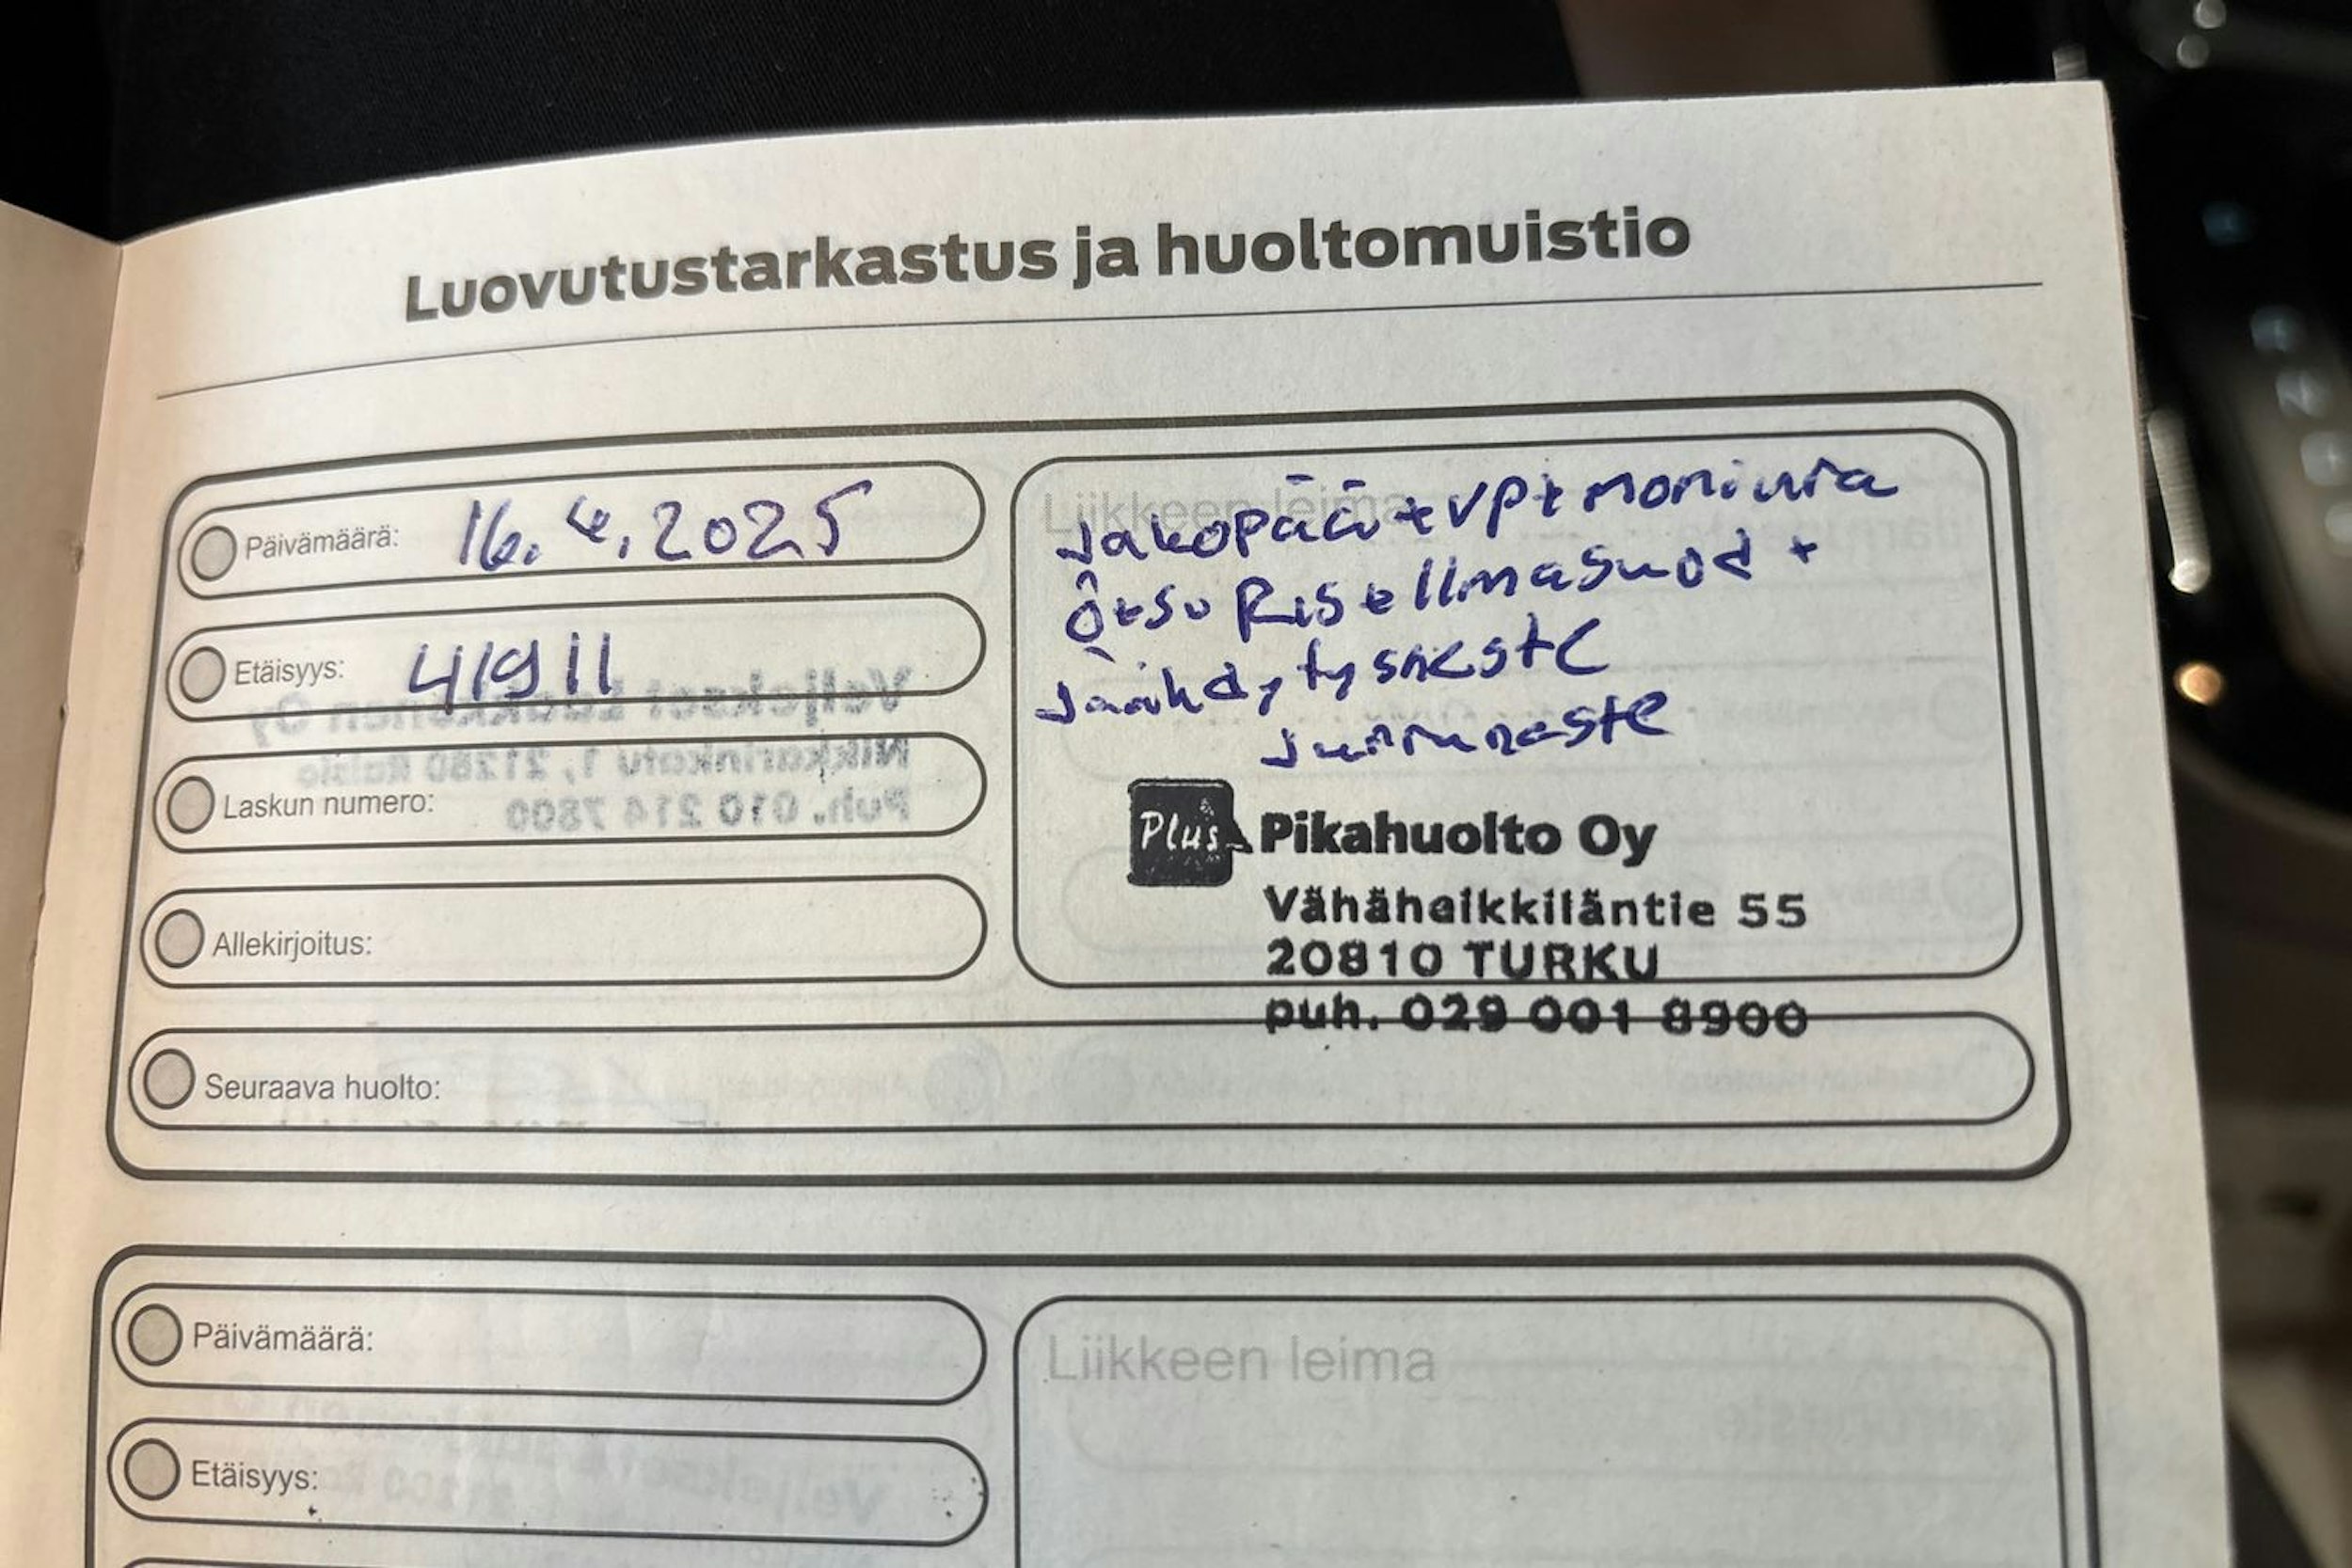 Luovutustarkastus ja huoltomuistio
Päivämäärä: 16.4.2025
Etäisyys: 41911
Laskun numero:
Allekirjoitus:
Seuraava huolto:
Liikkeen leima
Jakopää + vp + moniura
Öts
Jäähdytysneste
Jarruneste
Plus Pikahuolto Oy
Vähäheikkiläntie 55
20810 TURKU
puh. 029 001 8900
Päivämäärä:
Etäisyys:
Liikkeen leima